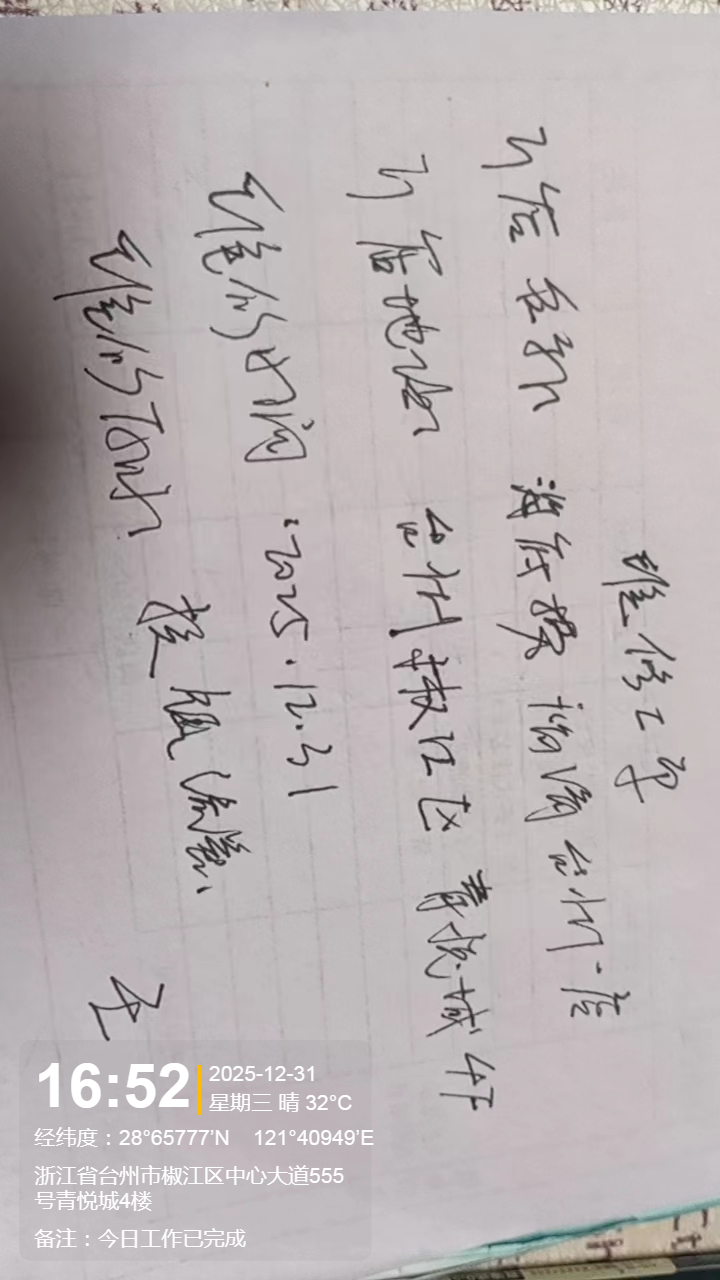 维修工单
门店名称 海底捞 台州一店
门店地址 台州椒江区 青悦城4F
维修时间:2025.12.31
维修内容 控制
王
16:52
2025-12-31
星期三 晴 32°C
经纬度：28°65777'N 121°40949'E
浙江省台州市椒江区中心大道555
号青悦城4楼
备注：今日工作已完成